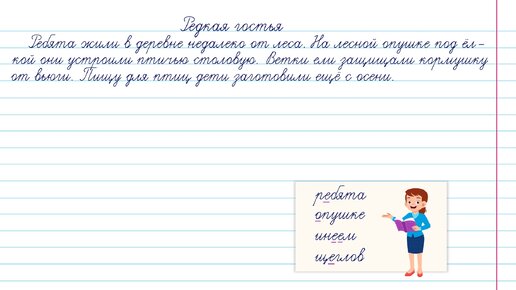 Редкая гостья
Ребята жили в деревне недалеко от леса. На лесной опушке под ёл-
кой они устроили птичью столовую. Ветки ели защищали кормушку
от вьюги. Пищу для птиц дети заготовили ещё с осени.
ребята
опушке
инеем
щеглов